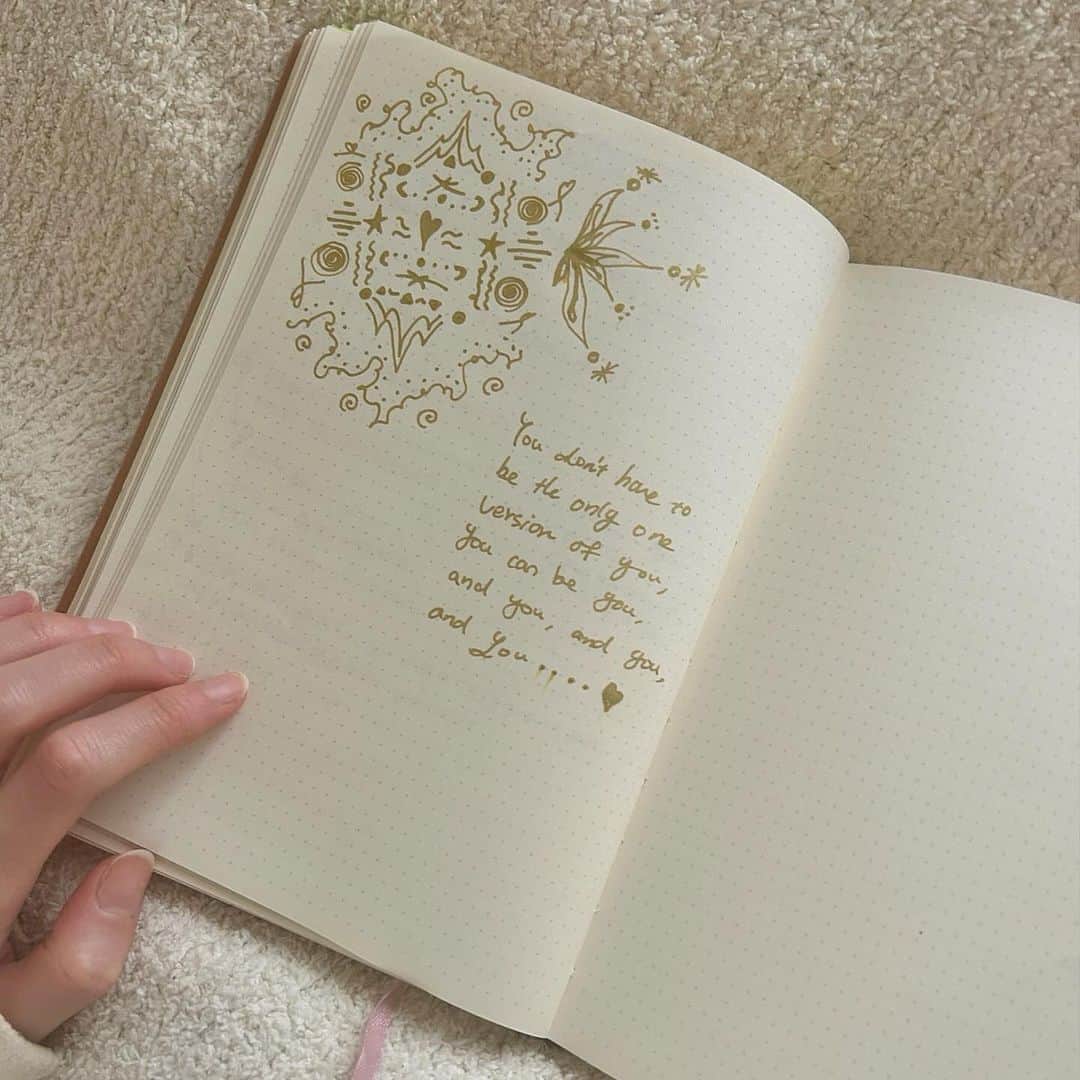 You don't have to
be the only one
version of you,
you can be you,
and you, and you,
and you.....